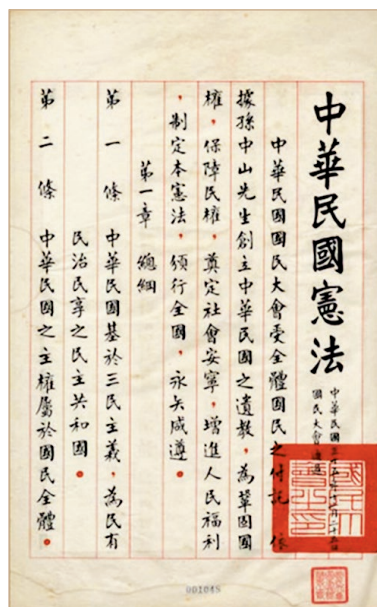 中華民國憲法
中華民國三十五年十二月二十五日
國民大會通過
中華民國國民大會受全體國民之付託，依
據孫中山先生創立中華民國之遺教，為鞏固國
權，保障民權，奠定社會安寧，增進人民福利
，制定本憲法，頒行全國，永矢咸遵。
第一章　總綱
第一條　中華民國基於三民主義，為民有
民治民享之民主共和國。
第二條　中華民國之主權屬於國民全體。
001045